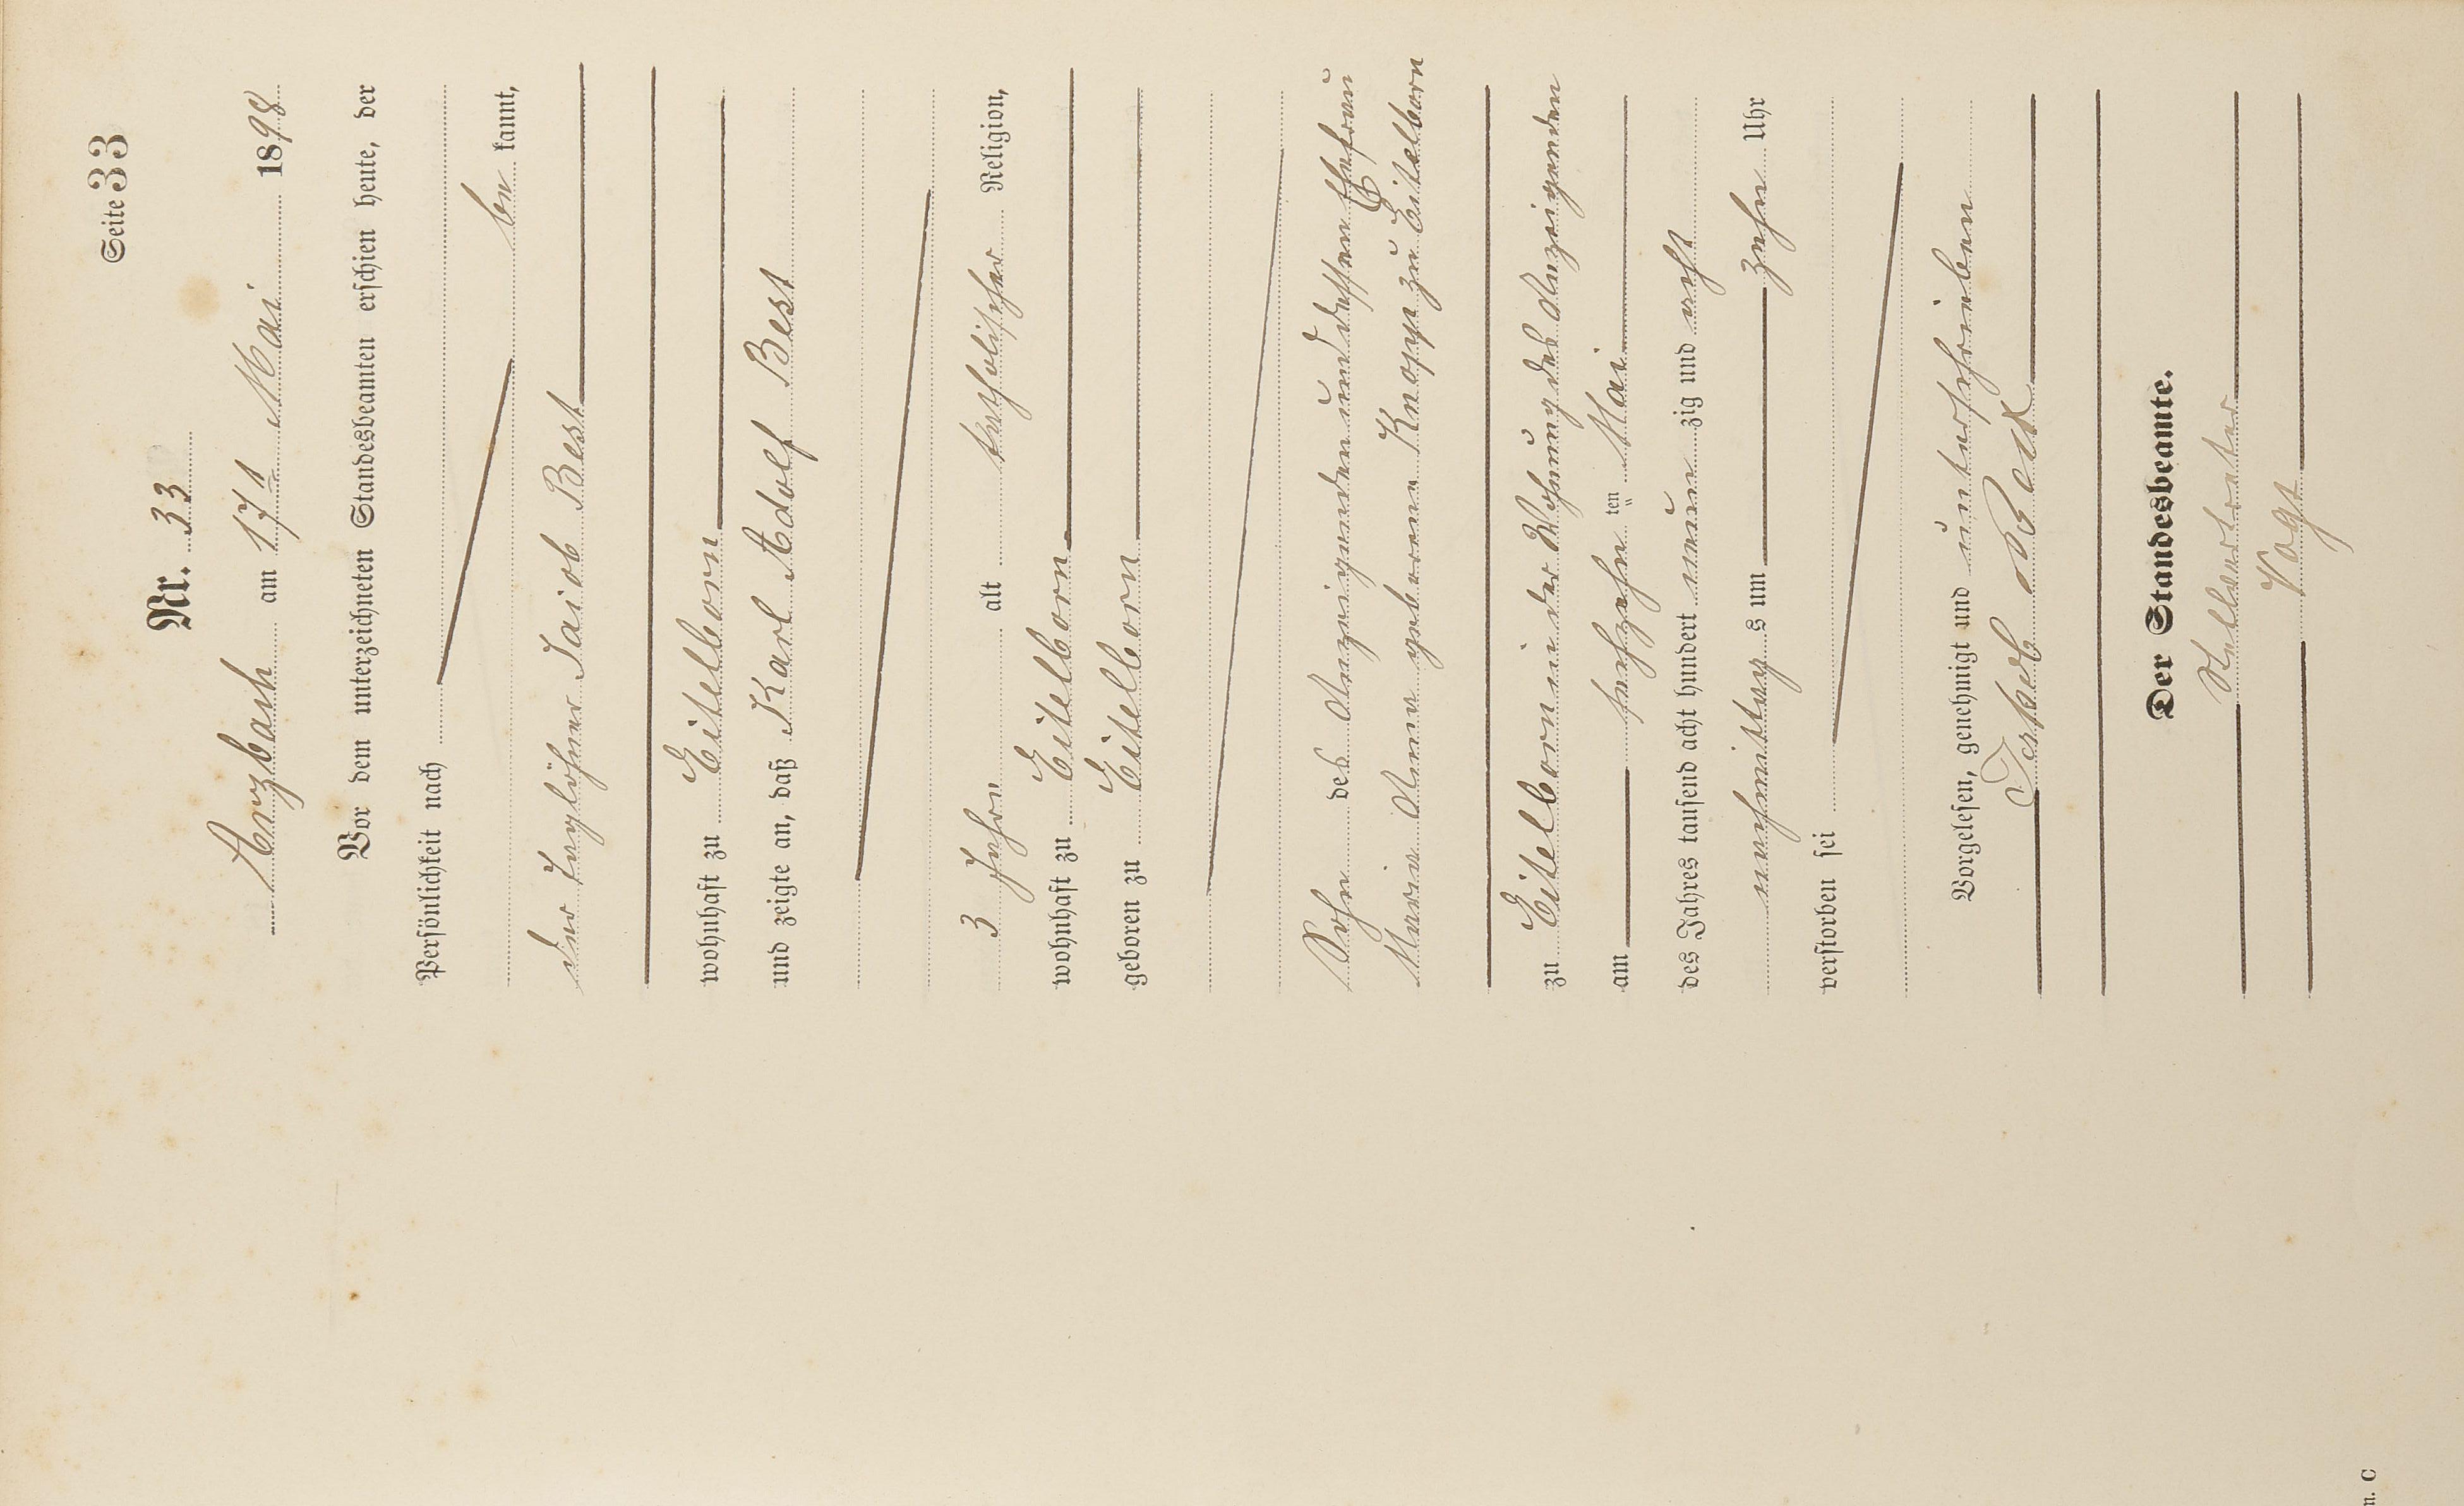 Seite 33
Nr. 33
Arzbach am 17t Mai 1898
Vor dem unterzeichneten Standesbeamten erschien heute, der
Persönlichkeit nach
be kannt,
der Taglöhner Jakob Best
wohnhaft zu Eitelborn
und zeigte an, daß Karl Adolf Best
3 Jahre alt katholischer Religion,
wohnhaft zu Eitelborn
geboren zu Eitelborn
Sohn des Anzeigenden und dessen Ehefrau
Maria Anna geborene Knopp zu Eitelborn
zu Eitelborn in der Wohnung des Anzeigenden
am sechzehn ten Mai
des Jahres tausend acht hundert neun zig und acht
nachmittag s um zehn Uhr
verstorben sei
Vorgelesen, genehmigt und unterschrieben
Jakob Best
Der Standesbeamte.
Stellvertreter
Vogt